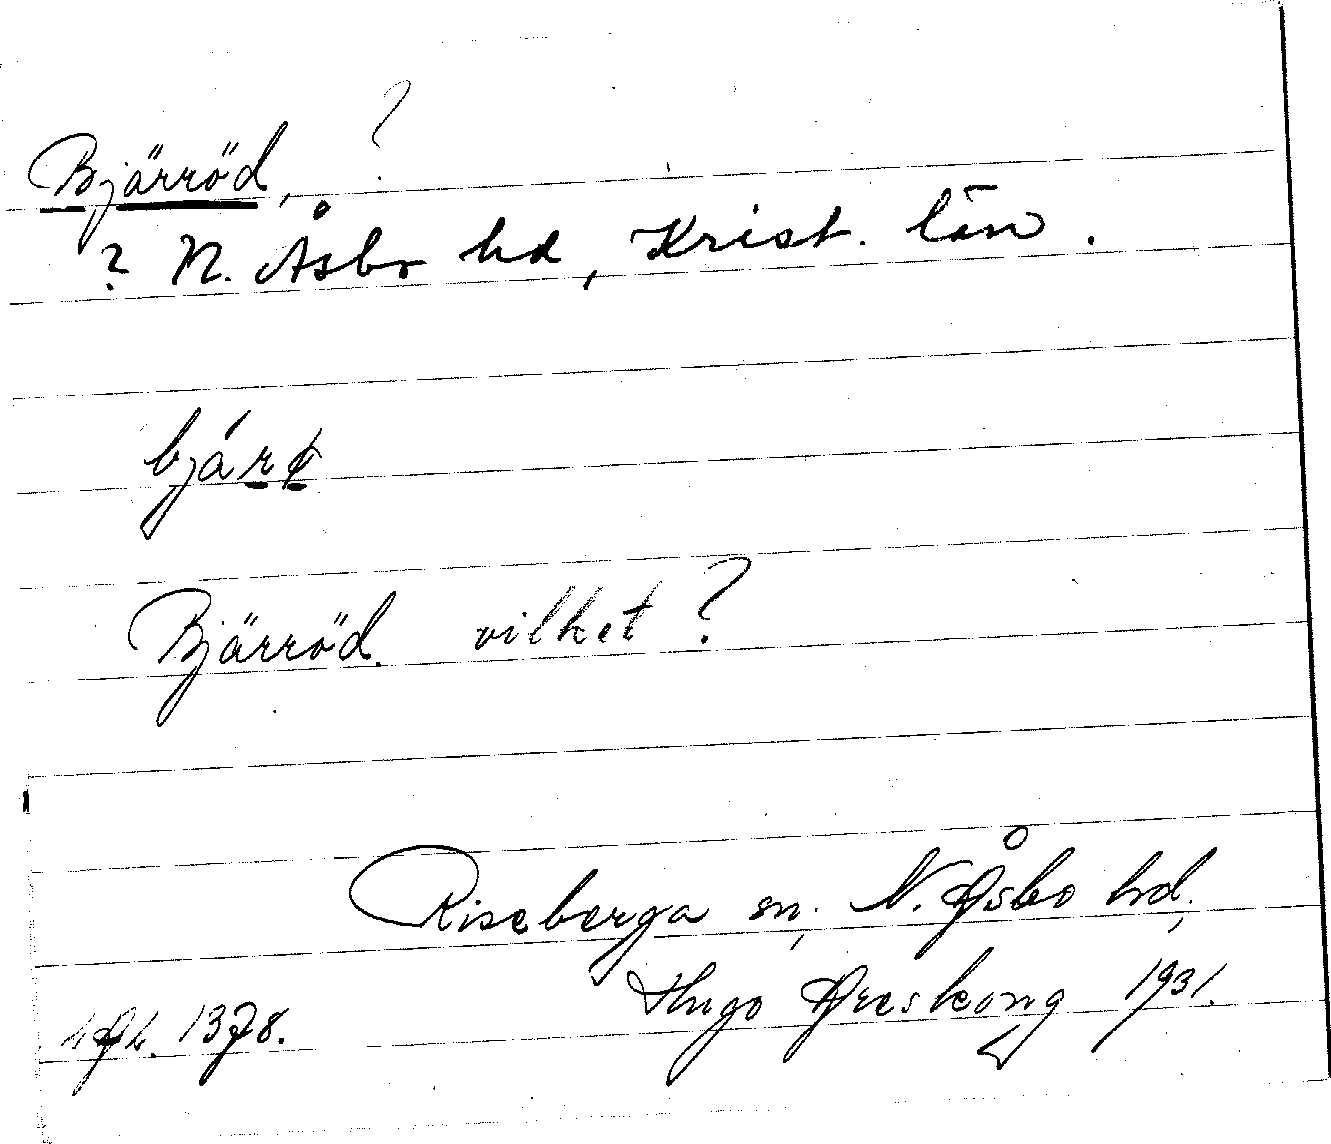 Bjärröd, ?
? N. Åsbo hd, Krist. län.
bjár
Bjärröd. vilket ?
Riseberga sn, N. Åsbo hd,
Hugo Areskoug 1931.
1378.